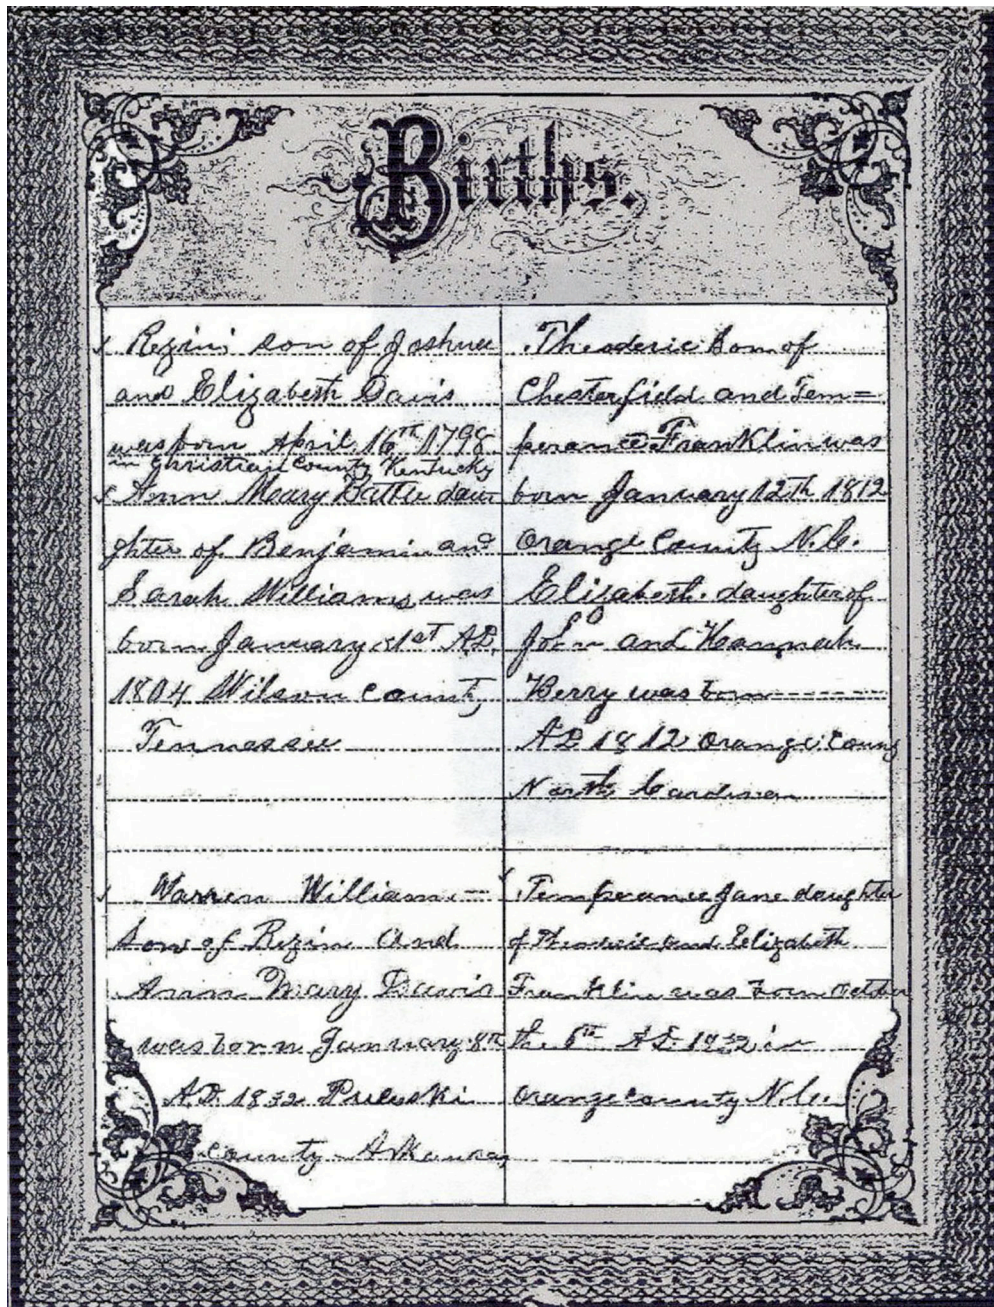 Births.
Rezin son of Joshua
and Elizabeth Davis
was born April 16th 1798
in Christian County Kentucky
Ann Mary Battle daw
ghter of Benjamin and
Sarah Williams was
born January 1st AD.
1804 Wilson County
Tennessee
Warren William =
Son of Rezin and
Annn Mary Davis
was born January 8th
A.D. 1832 Puluski
County Arkansas
Theoderic Son of
Chesterfield and Tem=
perance Franklin was
born January 12th 1812
Orange County N.C.
Elizabeth daughter of
John and Hannah
Berry was born
AD 1812 Orange County
North Carolina
Temperance Jane daughter
of Theoderic and Elizabeth
Franklin was born October
the 6th AD in
Orange County N.C.